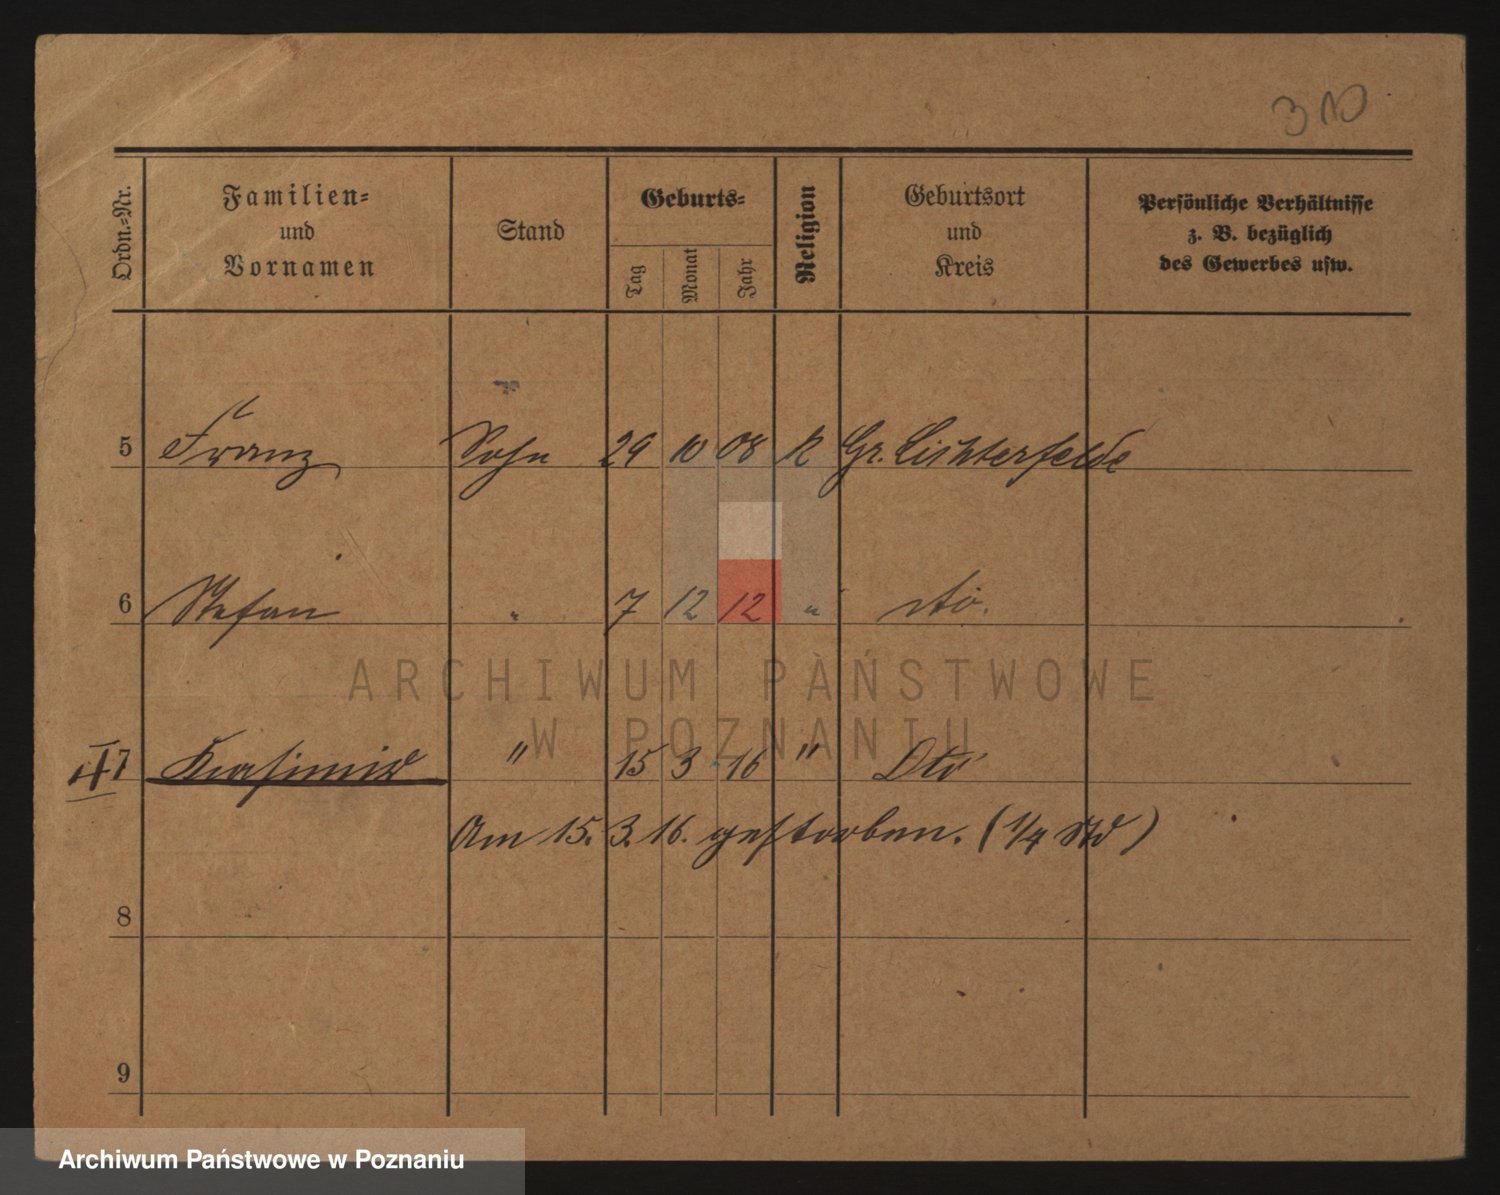 310
Ordn.-Nr.
Familien-
und
Vornamen
Stand
Geburts-
Tag
Monat
Jahr
Religion
Geburtsort
und
Kreis
Persönliche Verhältnisse
z. B. bezüglich
des Gewerbes usw.
5 Franz Sohn 29 10 08 k Gr. Lichterfelde
6 Stefan " 7 12 12 " dto.
ARCHIWUM PAŃSTWOWE
W POZNANIU
7 Kasimir " 15 3 16 " Dto
Am 15. 3. 16. gestorben. (1/4 Std)
8
9
Archiwum Państwowe w Poznaniu